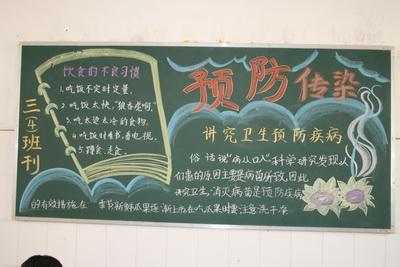 三(牛)班刊
饮食的不良习惯
1.吃饭不定时定量.
2.吃饭太快,"狼吞虎咽".
3.吃太烫太冷的食物.
4.吃饭时看书,看电视.
5.蹲食.走食.
预防传染
讲究卫生预防疾病
俗话说"病从口入".科学研究发现人
们患的原因主要是病菌所致,因此
讲究卫生,消灭病菌是预防疾病
的有效措施在 季节新鲜瓜果 渐上市在吃瓜果时要注意洗干净